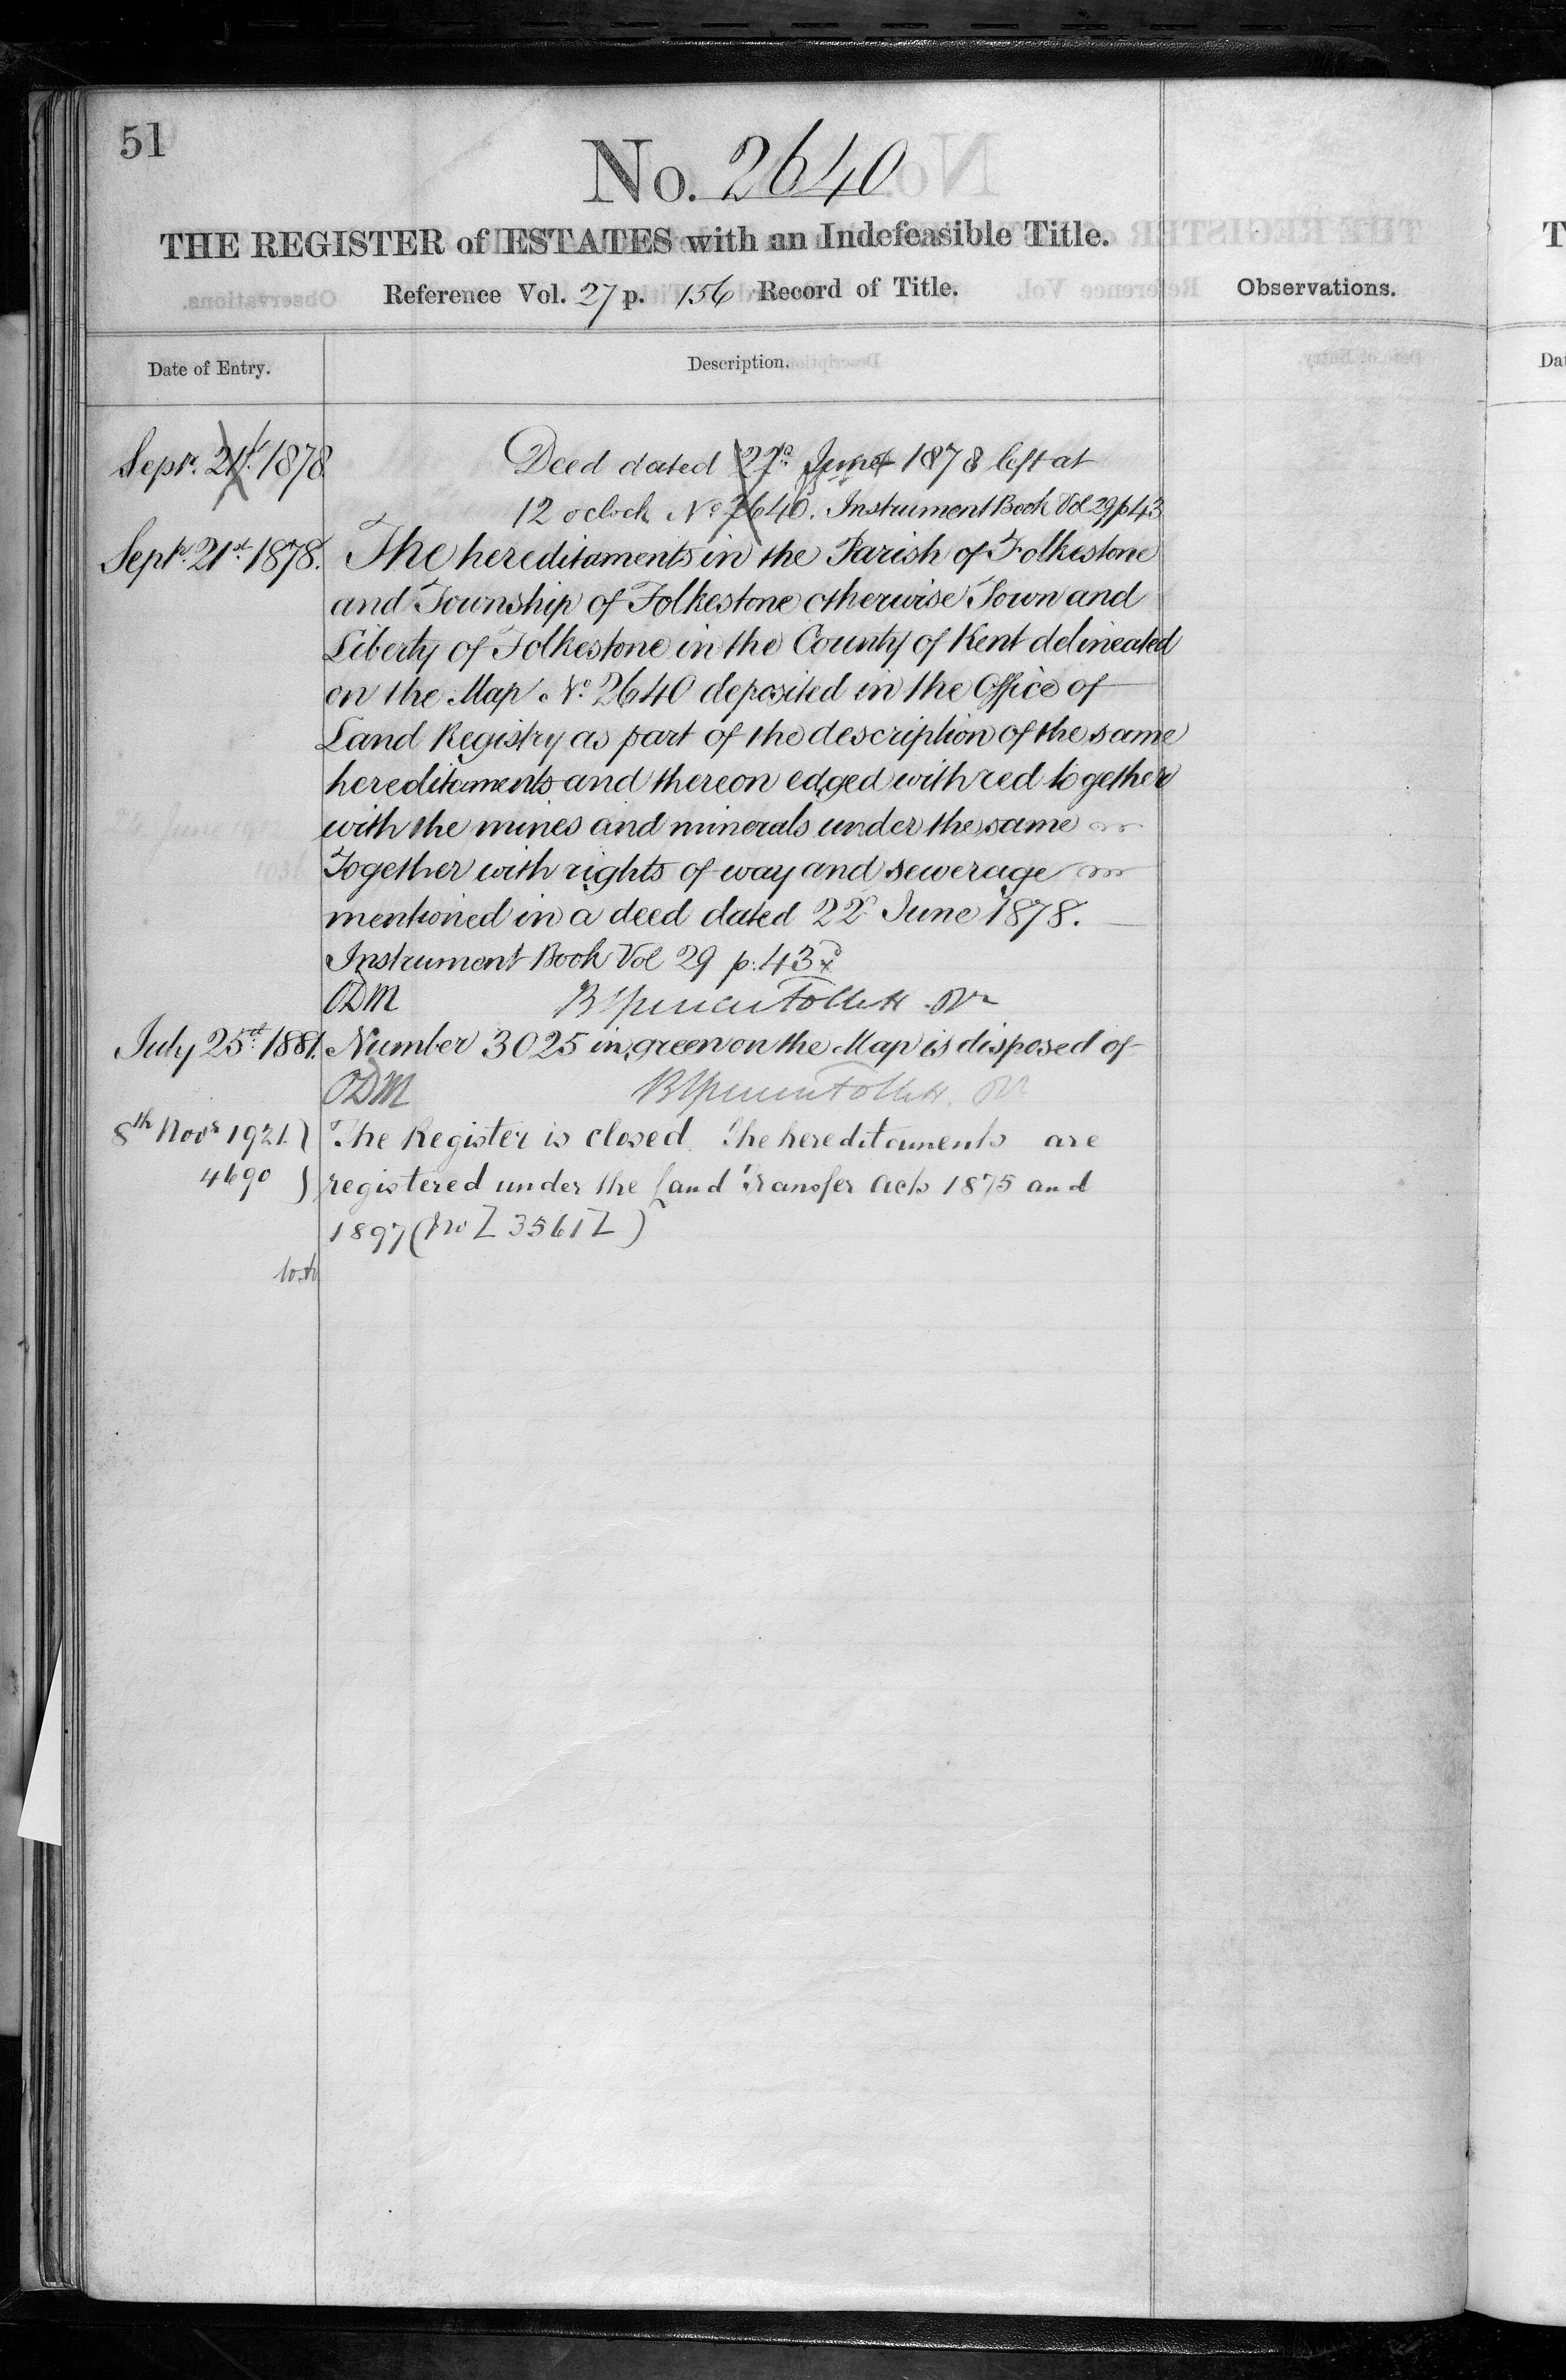 51
No. 2640
THE REGISTER of ESTATES with an Indefeasible Title.
Reference Vol. 27 p. 156 Record of Title.
Observations.
Date of Entry.
Description.
Septr. 21st. 1878
Deed dated 22d. June 1878 left at
12 oclock No 2640. Instrument Book Vol 29 p 43
Septr. 21st. 1878. The hereditaments in the Parish of Folkestone
and Township of Folkestone otherwise Town and
Liberty of Folkestone in the County of Kent delineated
on the Map No. 2640 deposited in the Office of
Land Registry as part of the description of the same
hereditaments and thereon edged with red together
with the mines and minerals under the same
Together with rights of way and sewerage
mentioned in a deed dated 22d June 1878.
Instrument Book Vol 29 p. 43
ODM
July 25th. 1881. Number 3025 in green on the Map is disposed of
ODM
8th Novr 1921. } The Register is closed. The hereditaments are
4690 } registered under the Land Transfer Acts 1875 and
1897 (No Z 3561 Z)